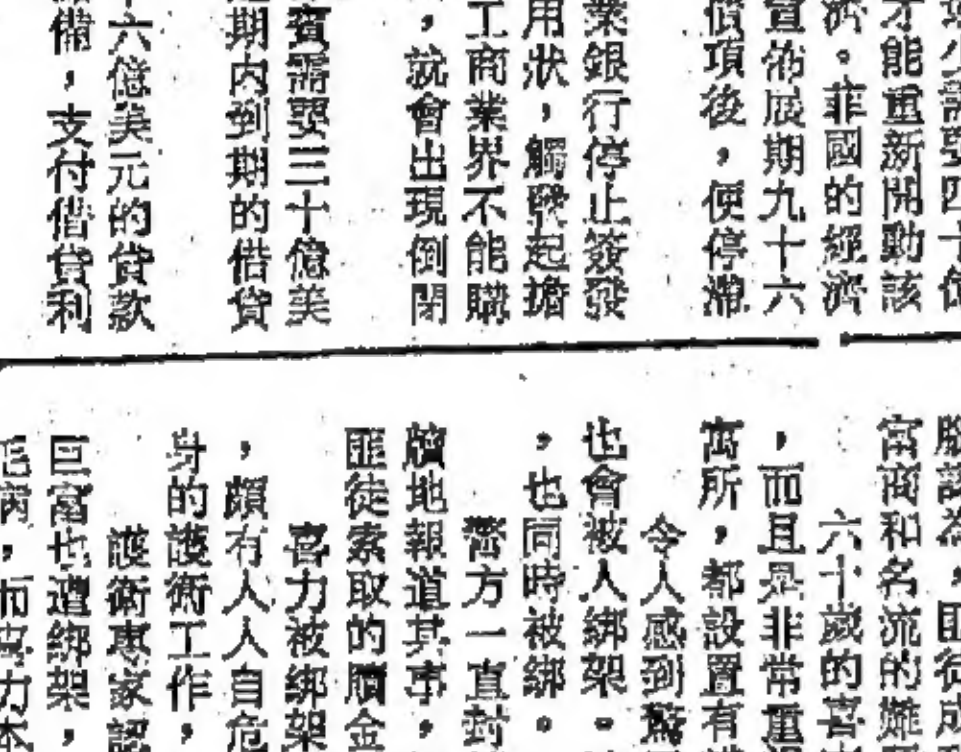 少需要四十億
才能重新開動該
濟。菲國的經濟
宣佈展期九十六
債項後，便停滯
業銀行停止簽發
用狀，觸發起擔
工商業界不能購
，就會出現倒閉
賓需要三十億美
期內到期的借貸
六億美元的貸款
備，支付借貸利
認為，匪徒成
富商和名流的
六十歲的喜
，而且是非常重
寓所，都設置有
令人感到驚
也會被人綁架。
，也同時被綁。
警方一直封
牘地報道其事，
匪徒索取的贖金
喜力被綁架
，頗有人人自危
身的護衛工作，
護衛專家認
巨富也遭綁架，
病，而喜力本